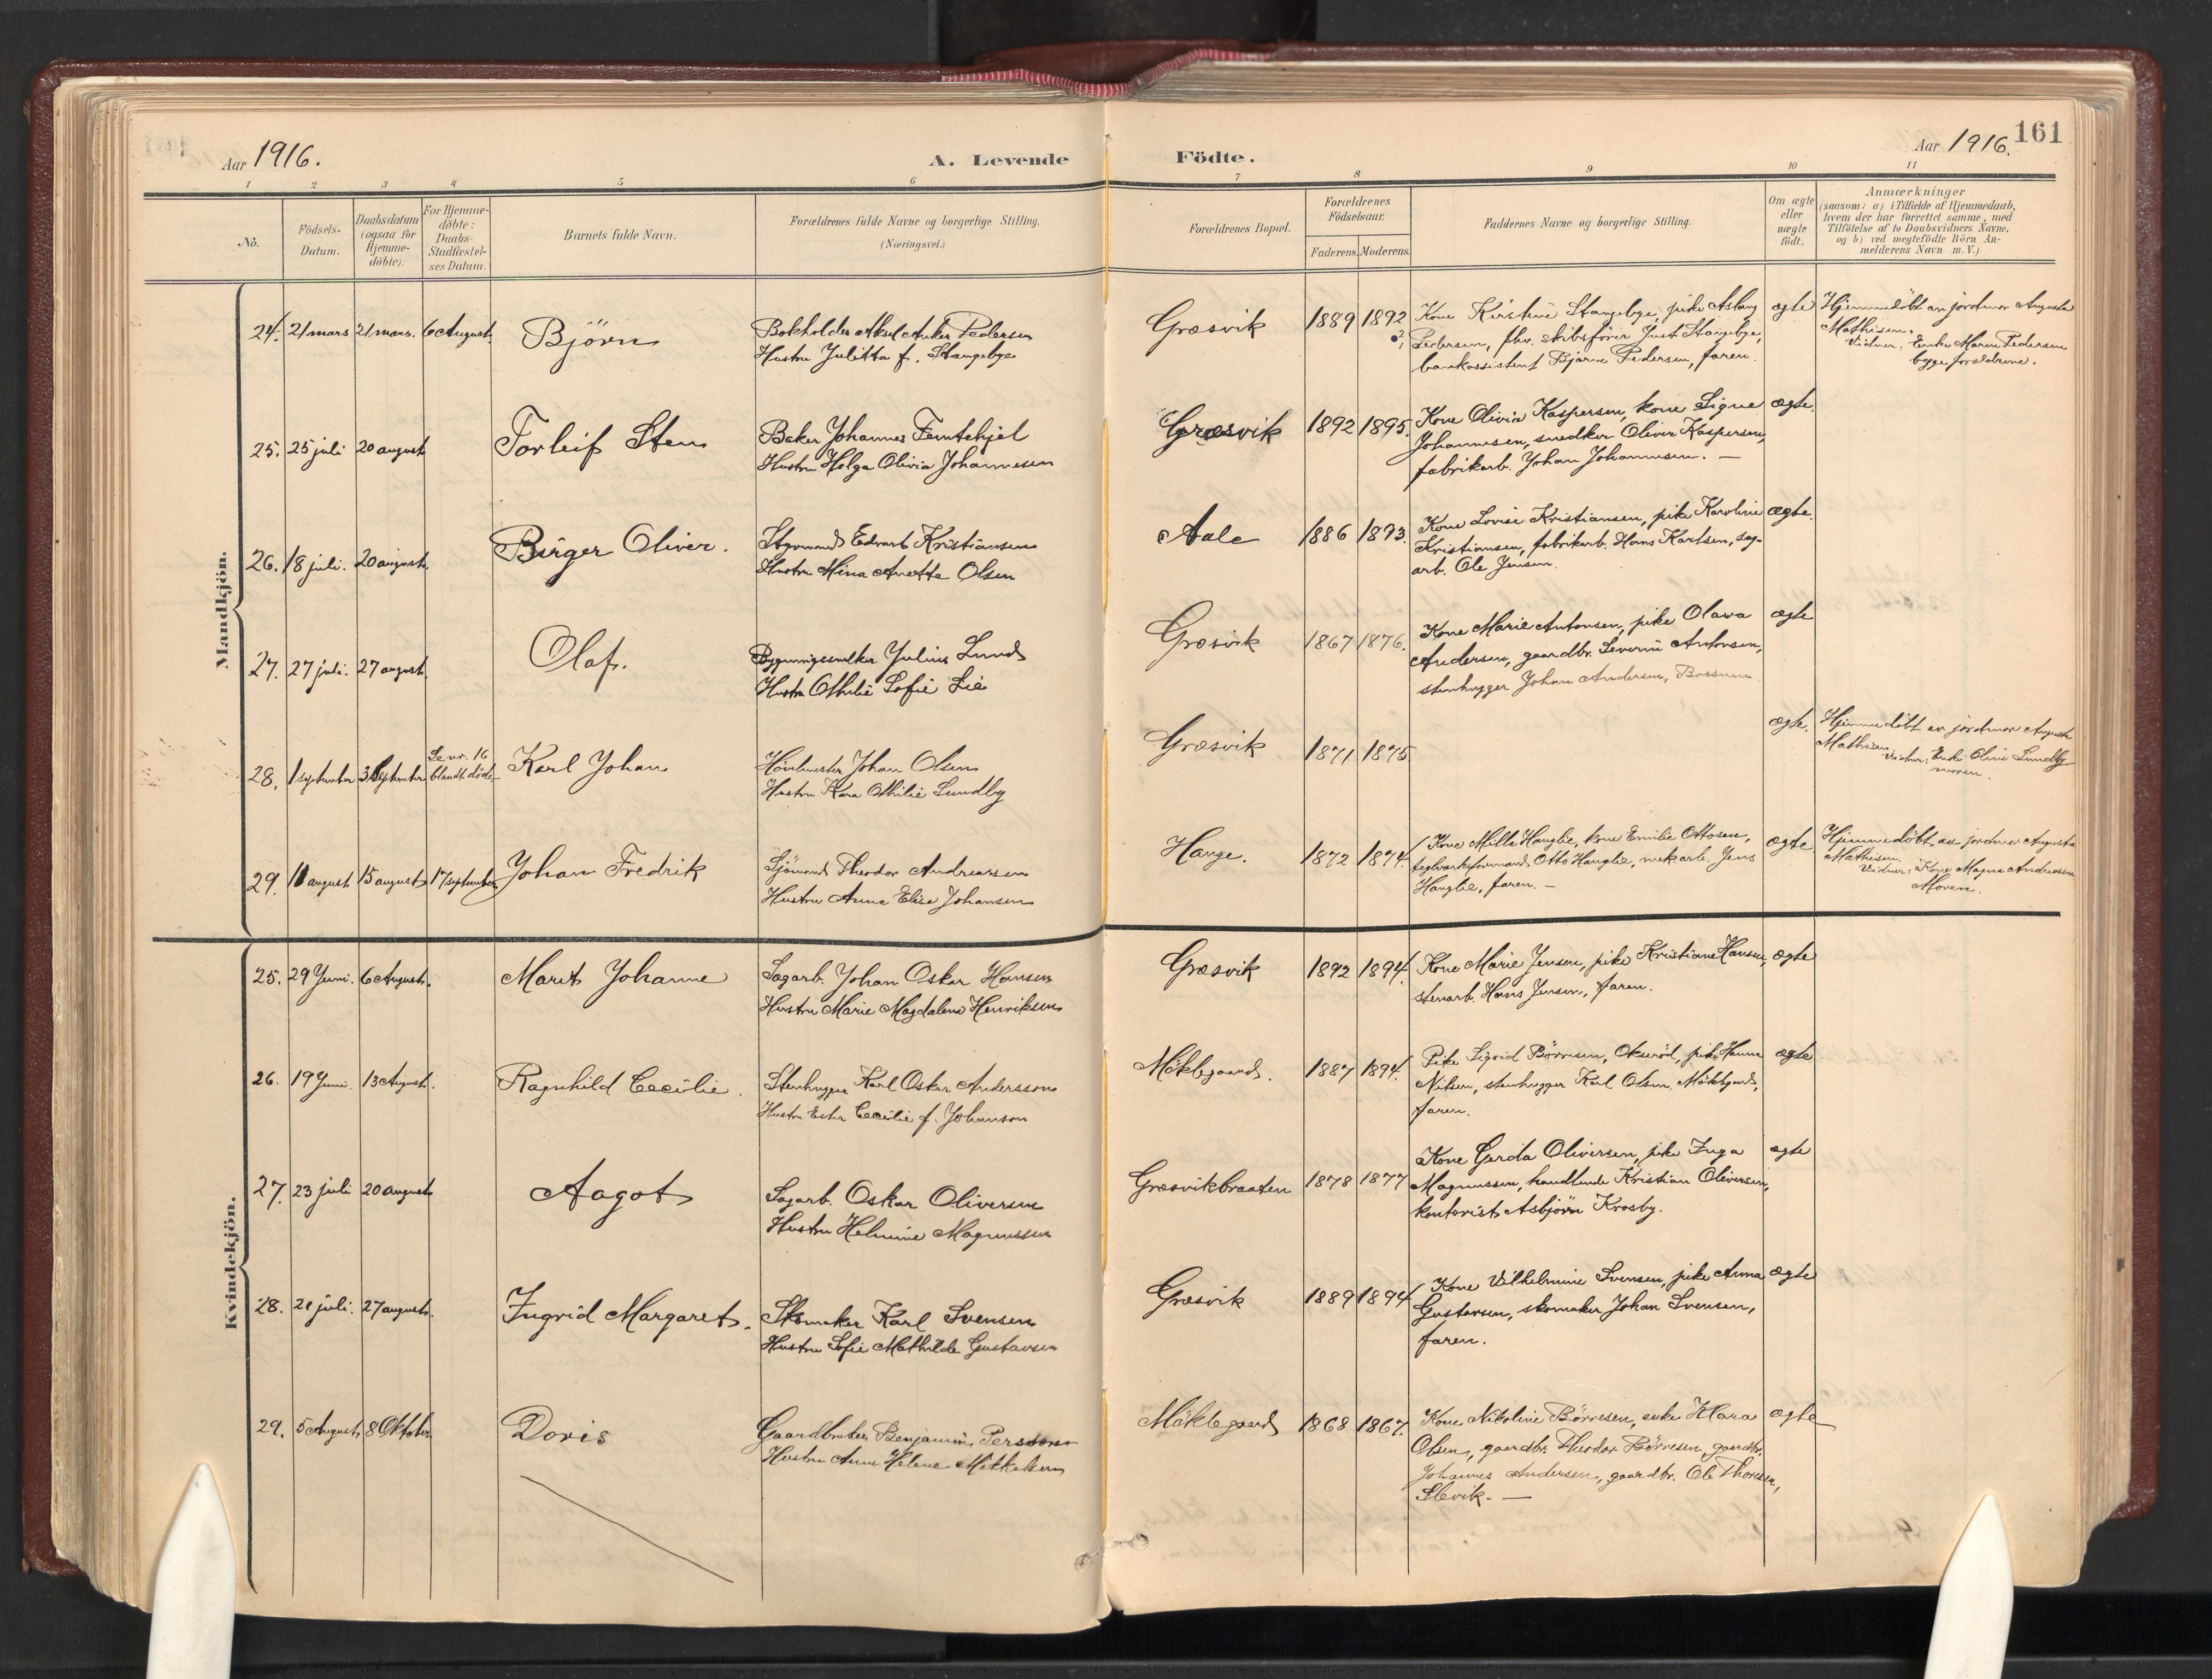 Aar 1916.
A. Levende Födte.
Aar 1916.
161
1 2 3 4 5 6 7 8 9 10 11
No.
Födsels-
Datum.
Daabsdatum
(ogsaa for
Hjemme-
döbte).
For Hjemme-
döbte:
Daabs-
Stadfæstel-
ses Datum.
Barnets fulde Navn.
Forældrenes fulde Navne og borgerlige Stilling.
(Næringsvei.)
Forældrenes Bopæl.
Forældrenes
Födselsaar.
Faderens. Moderens.
Faddernes Navne og borgerlige Stilling.
Om ægte
eller
uægte
födt.
Anmærkninger
(saasom: a) i Tilfælde af Hjemmedaab,
hvem der har forrettet samme, med
Tilföielse af to Daabsvidners Navne,
og b) ved uægtefödte Börn An-
melderens Navn m. V.)
Mandkjön.
24. 21 mars 21 mars. 6 August.
Björn
Bokholder Aksel Anker Pedersen
Hustru Julitta f. Stangebye
Græsvik
1889 1892
Kone Kirstine Stangebye, pike Aslaug
Pedersen, fhv. skibsförer Just Stangebye,
bankassistent Bjarne Pedersen, faren.
ægte
Hjemmedöbt av jordmor Augusta
Mathisen.
Vidner: Enke Maren Pedersen
begge forældrene.
25. 25 juli 20 august
Torleif Sten
Baker Johannes Femtehjel
Hustru Helga Olivia Johannesen
Græsvik
1892 1895.
Kone Olivia Kaspersen, kone Signe
Johannesen, snedker Oliver Kaspersen,
fabrikarb. Johan Johannesen. —
ægte.
26. 18 juli. 20 august.
Birger Oliver.
Styrmand Edvart Kristiansen
Hustru Mina Anette Olsen
Aale
1886 1893.
Kone Lovise Kristiansen, pike Karoline
Kristiansen, fabrikarb. Hans Karlsen, sag-
arb. Ole Jensen.
ægte.
27. 27 juli. 27 august.
Olaf.
Bygningssnedker Julius Lund
Hustru Othilie Sofie Lie
Græsvik
1867 1876.
Kone Marie Antonsen, pike Olava
Andersen, gaardbr. Severin Antonsen,
stenhugger Johan Andersen, Bossum
ægte
28. 1 september 3 September
Se nr. 16
blandt döde
Karl Johan
Johan Olsen
Hustru Kara Othilie Lundby
Græsvik
1871 1875
ægte.
Hjemmedöbt av jordmor Augusta
Mathisen
Vidner: Enke Oline Lundby
moren.
29. 11 august 15 august 17 september
Johan Fredrik
Sjömand Theodor Andreassen
Hustru Anna Elise Johansen
Hauge.
1872 1874.
Kone Milla Hauglie, kone Emilie Ottosen,
teglverksformand Otto Hauglie, mek arb. Jens
Hauglie, faren. —
ægte
Hjemmedöbt av jordmor Augusta
Mathisen.
Vidner: Kone Magna Andresen
Moren.
Kvindekjön.
25. 29 Juni. 6 August.
Marit Johanne
Sagarb. Johan Oskar Hansen
Hustru Marie Magdalena Henriksen
Græsvik
1892 1894.
Kone Marie Jensen, pike Kristiane Hansen,
stenarb. Hans Jensen, faren.
ægte
26. 19 Juni. 13 August.
Ragnhild Cecilie.
Stenhugger Karl Oskar Andersson
Hustru Ester Cecilie f. Johanson
Möklegaard.
1887 1894.
Pike Sigrid Börresen, Okseröd, pike Hanna
Nilsen, stenhugger Karl Olsen, Möklegaard,
faren.
ægte
27. 23 juli 20 august
Aagot
Sagarb. Oskar Oliversen
Hustru Helmine Magnussen
Græsvikbraaten
1878 1877
Kone Gerda Oliversen, pike Inga
Magnussen, handlende Kristian Oliversen,
kontorist Asbjörn Krosby.
ægte
28. 21 juli. 27 august.
Ingrid Margaret.
Skomaker Karl Svensen
Hustru Sofie Mathilde Gustavsen
Græsvik
1889 1894
Kone Vilhelmine Svensen, pike Anna
Gustavsen, skomaker Johan Svensen,
faren.
ægte
29. 5 August 8 Oktober
Doris
Gaardbruker Benjamin Persson
Hustru Anne Helene Mikkelsen
Möklegaard
1868 1867.
Kone Nikoline Börresen, enke Klara
Olsen, gaardbr. Theodor Börresen, gaardbr.
Johannes Andersen, gaardbr. Ole Thoresen,
Slevik. —
ægte